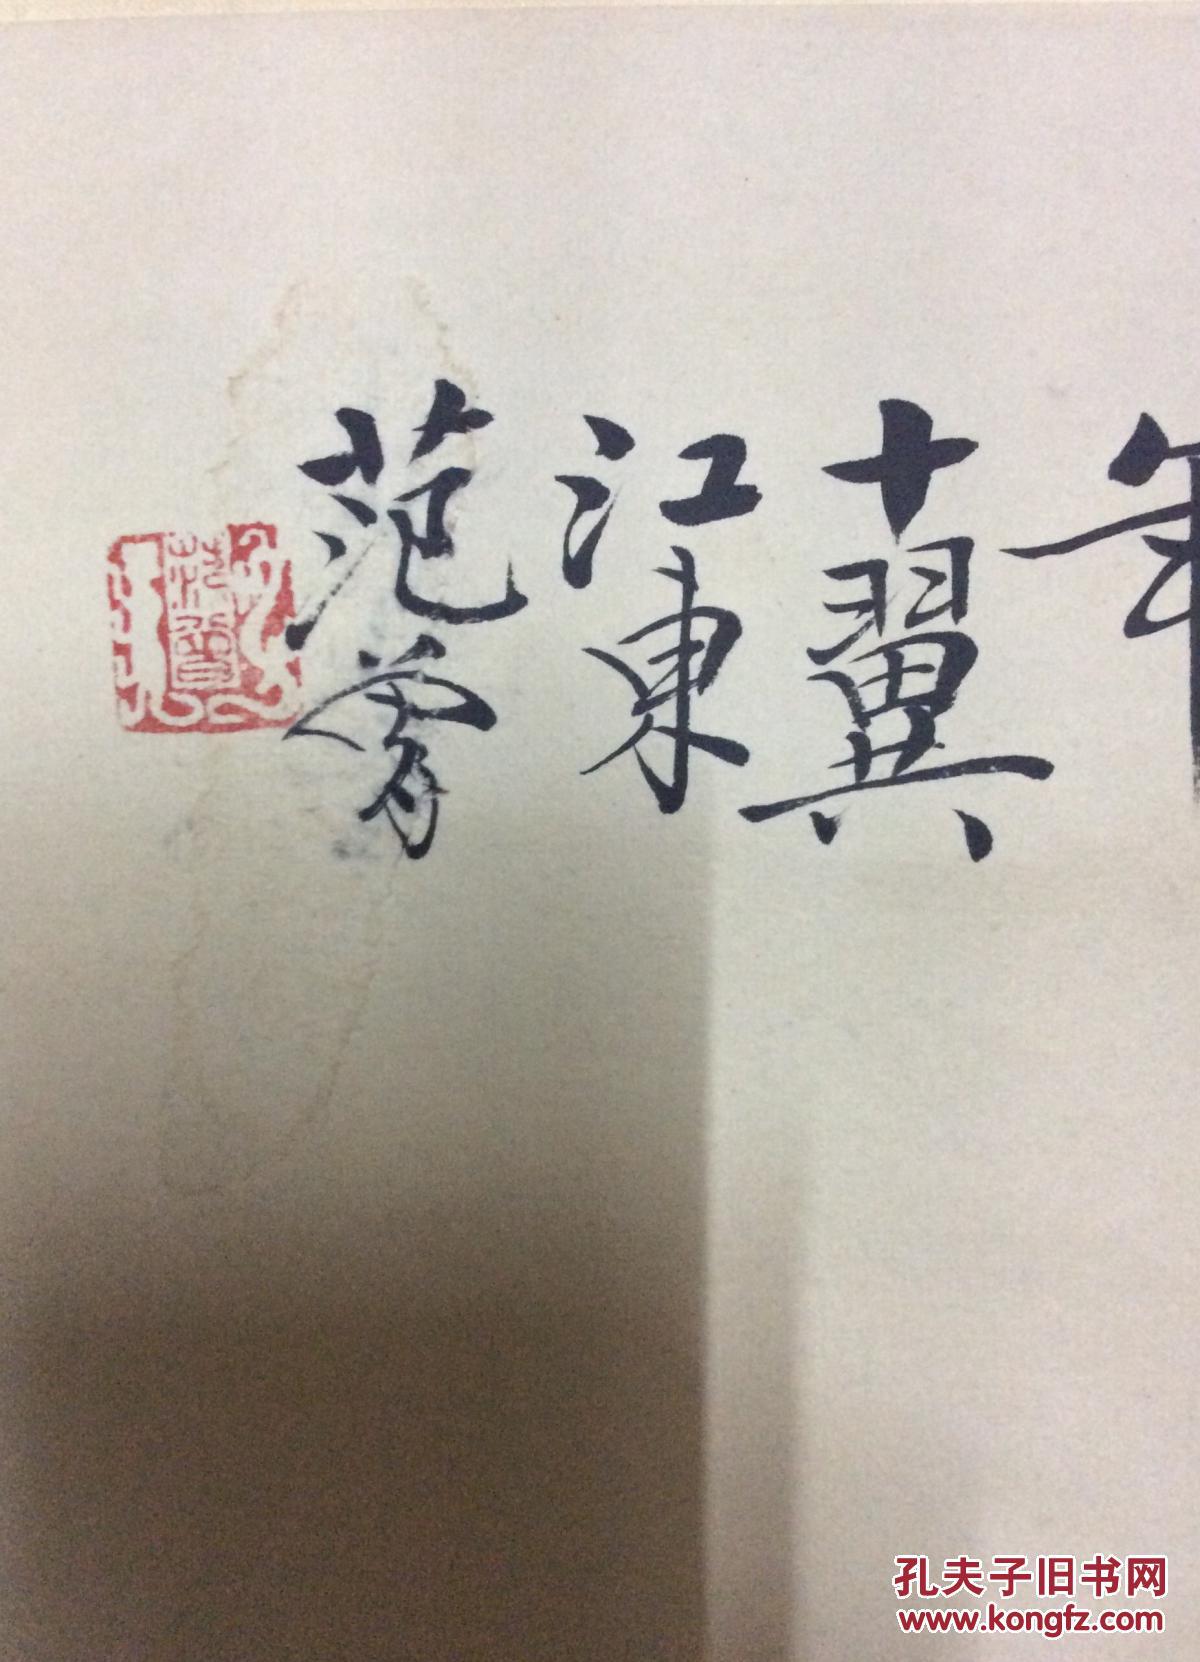 年
十翼
江東
范曾
孔夫子旧书网
www.kongfz.com